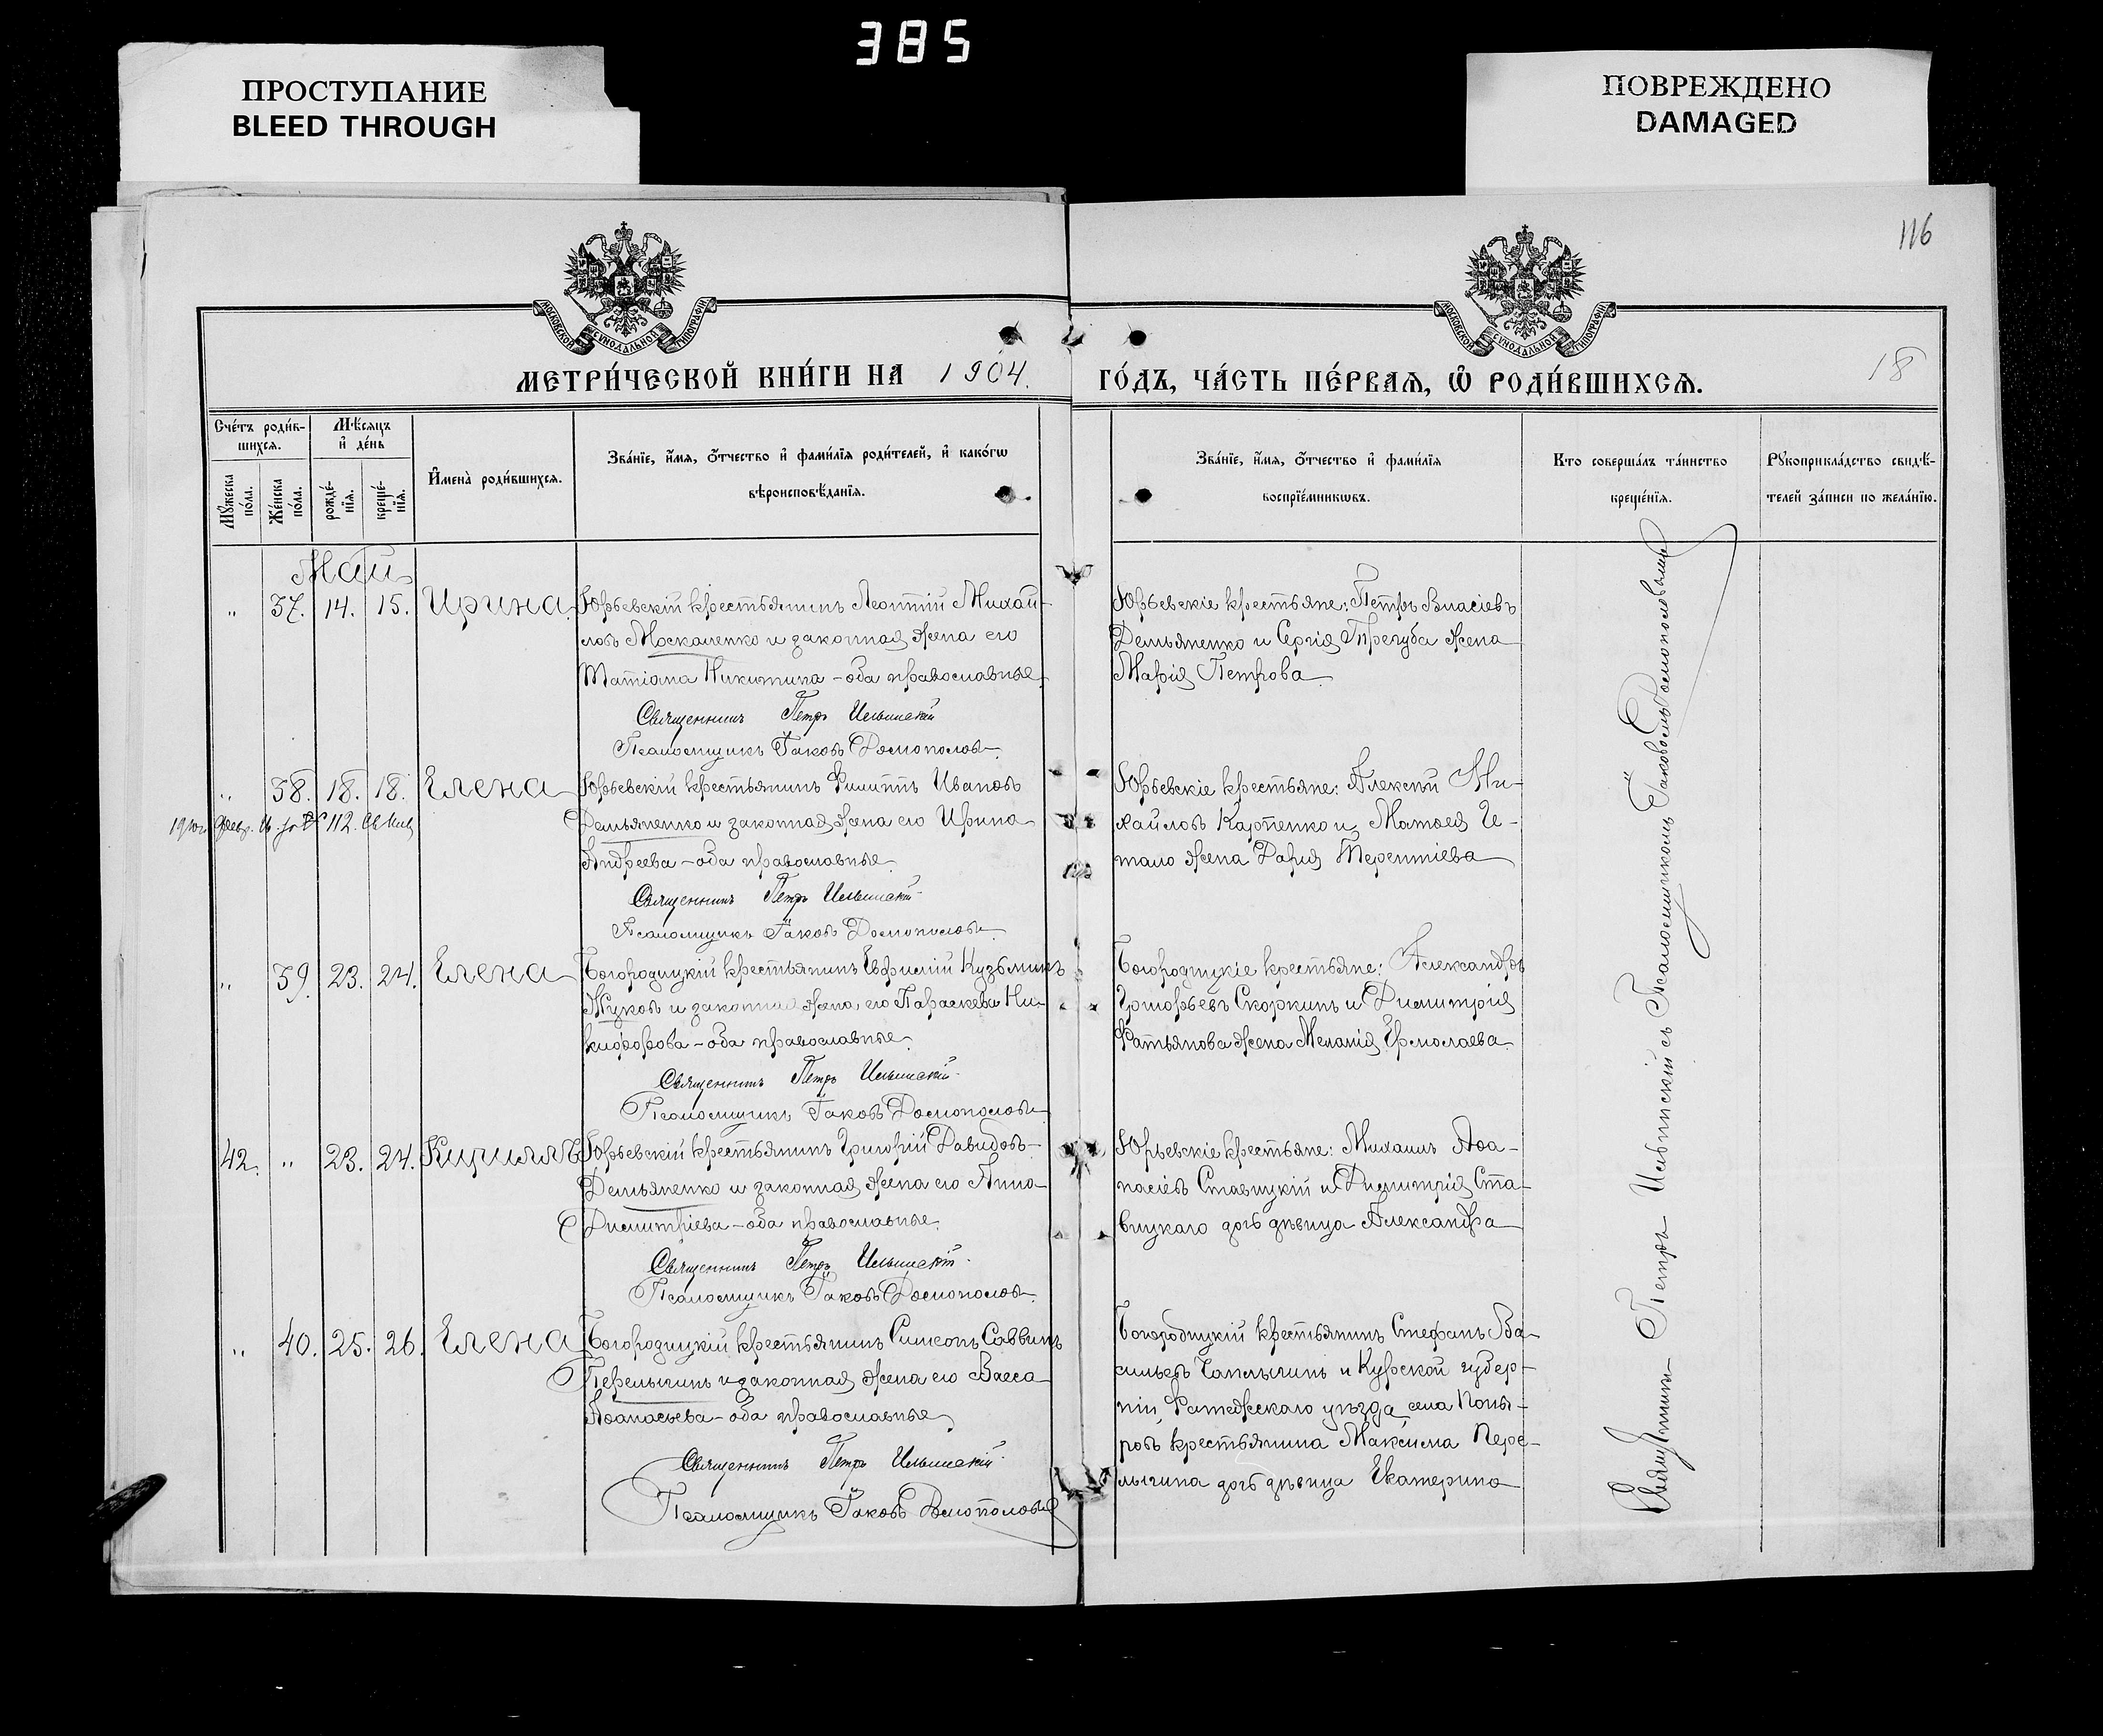 385
ПРОСТУПАНИЕ
BLEED THROUGH
ПОВРЕЖДЕНО
DAMAGED
116
МОСКОВСКОЙ СѴНОДАЛЬНОЙ ТИПОГРАФІИ
МОСКОВСКОЙ СѴНОДАЛЬНОЙ ТИПОГРАФІИ
МЕТРИ́ЧЕСКОЙ КНИ́ГИ НА 1904.
ГО́ДЪ, ЧА́СТЬ ПЕ́РВАѦ, Ѡ҆ РОДИ́ВШИХСѦ.
18
Сче́тъ роди́в-
шихсѧ.
Мѣ́сѧцъ
и҆ де́нь
Мꙋ́жеска по́ла.
Же́нска по́ла.
рожде́-
нїѧ.
креще́-
нїѧ.
И҆мена̀ роди́вшихсѧ.
Зва́нїе, и҆́мѧ, ѻ҆́тчество и҆ фами́лїѧ роди́телей, и҆ како́гѡ
вѣроисповѣ́данїѧ.
Зва́нїе, и҆́мѧ, ѻ҆́тчество и҆ фами́лїѧ
воспрїе́мникѡвъ.
Кто соверша́лъ та́инство
креще́нїѧ.
Рꙋкоприкла́дство свидѣ́-
телей за́писи по жела́нїю.
Май
„ 37. 14. 15. Ирина
Юрьевскій крестьянинъ Леонтій Михай-
ловъ Москаленко и законная жена его
Татіана Никитина – оба православные.
Священникъ Петръ Ильинскій
Псаломщикъ Іаковъ
Юрьевскіе крестьяне: Петръ Власіевъ
Демьяненко и Сергія Трегуба жена
Марія Петрова
„ 38. 18. 18. Елена
1910г. Февр. 112.
Юрьевскій крестьянинъ Филиппъ Ивановъ
Демьяненко и законная жена его Ирина
Андреева – оба православные.
Священникъ Петръ Ильинскій
Псаломщикъ Іаковъ
Юрьевскіе крестьяне: Алексѣй Ми-
хайловъ Карпенко и Матѳея Че-
тало жена Дарія Терентіева
„ 39. 23. 24. Елена
Богородицкій крестьянинъ Евфимій Кузьминъ
Жуковъ и законная жена его Параскева Ни-
кифорова – оба православные.
Священникъ Петръ Ильинскій
Псаломщикъ Іаковъ
Богородицкіе крестьяне: Александръ
Григорьевъ Скоркинъ и Димитрія
Фатьянова жена Меланія Ермолаева
42. „ 23. 24. Кириллъ
Юрьевскій крестьянинъ Григорій Давидовъ
Демьяненко и законная жена его Анна
Димитріева – оба православные.
Священникъ Петръ Ильинскій
Псаломщикъ Іаковъ
Юрьевскіе крестьяне: Михаилъ Аѳа-
насіевъ Ставицкій и Димитрія Ста-
вицкаго дочь дѣвица Александра
„ 40. 25. 26. Елена
Богородицкій крестьянинъ Симеонъ Саввинъ
Перелыгинъ и законная жена его Васса
Аѳанасьева – оба православные
Священникъ Петръ Ильинскій
Псаломщикъ Іаковъ
Богородицкій крестьянинъ Стефанъ Ва-
сильевъ Чаплыгинъ и Курской губер-
ніи, Фатежскаго уѣзда села Поны-
ровъ крестьянина Максима Пере-
лыгина дочь дѣвица Екатерина
Священникъ Петръ Ильинскій съ Псаломщикомъ Іаковомъ